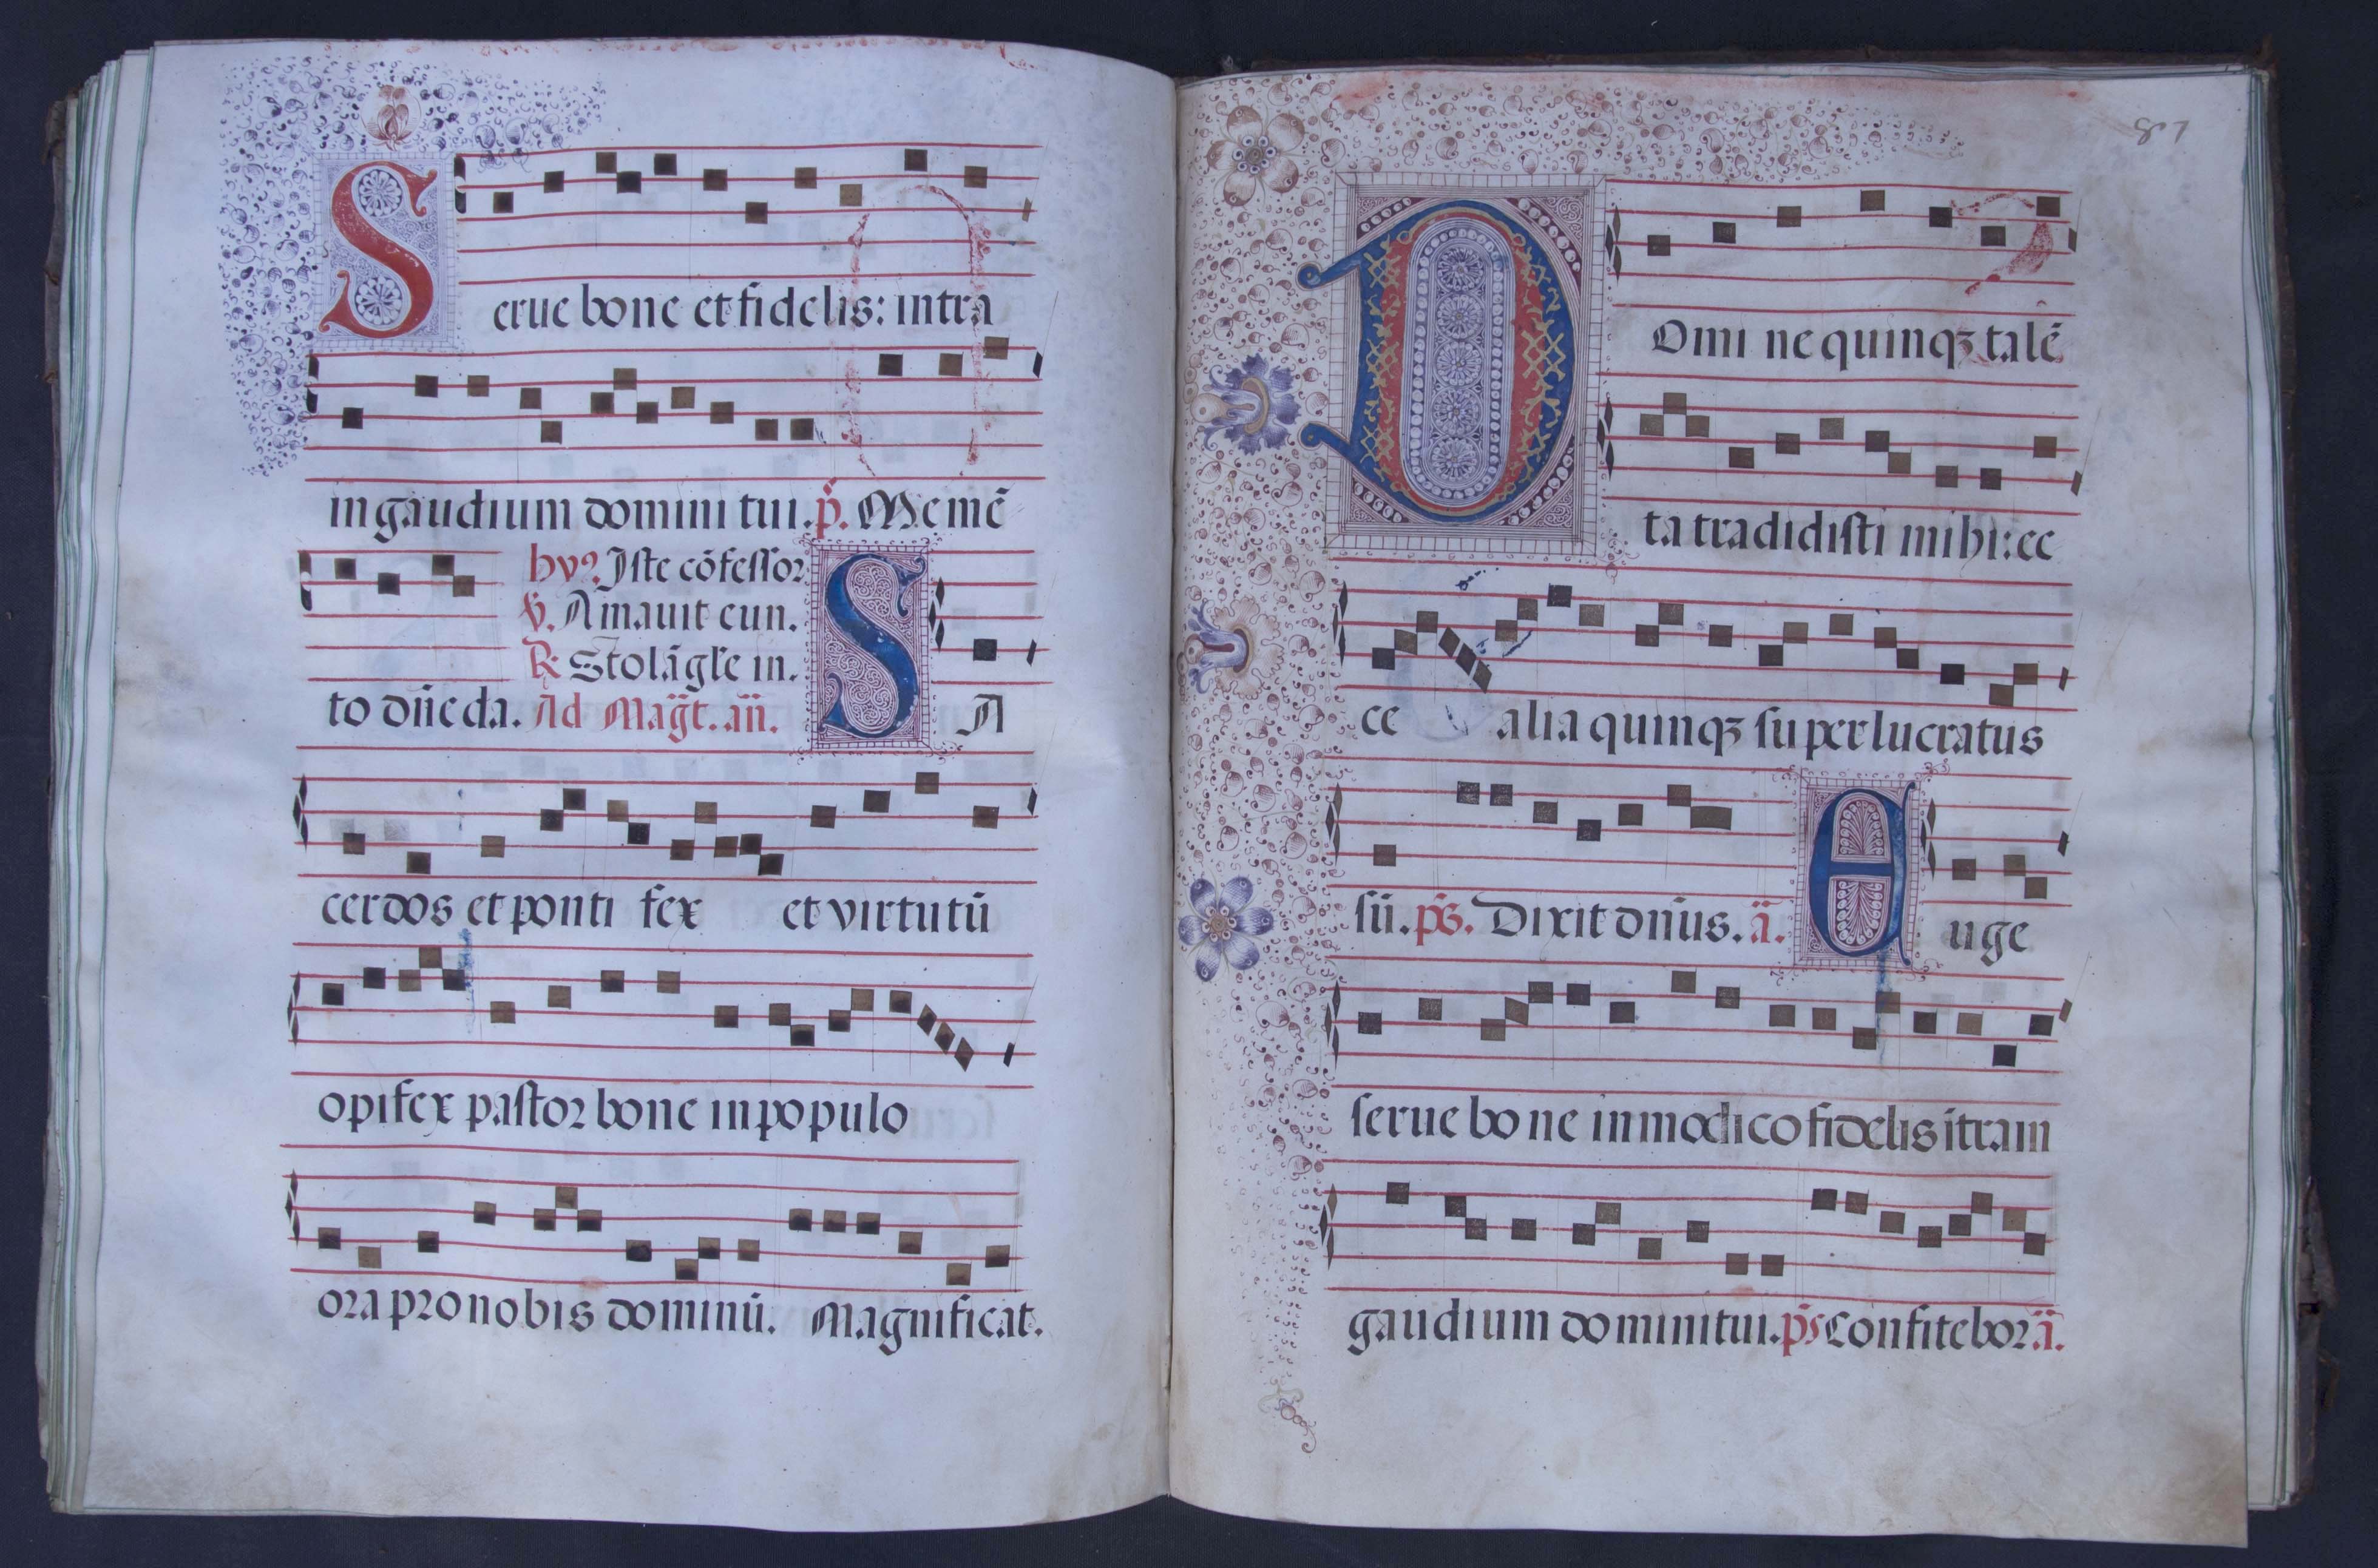 Serue bone et fidelis: intra
in gaudium domini tui. p̄. Memē
hyꝰ. Iste cōfessor
℣. Amauit eun.
℟. Stolā gl'e in.
to dn̄e da. Ad Mag̃t. añ. SA
cerdos et ponti fex et virtutū
opifex pastor bone in populo
ora pro nobis dominū. Magnificat.
87
Domi ne quinqꝫ talē
ta tradidisti mihi: ec
ce alia quinqꝫ superlucratus
sū. pš. Dixit dn̄us. ā. Euge
serue bo ne in modico fidelis ītra in
gaudium do mini tui. ps̄ Confitebor ā.